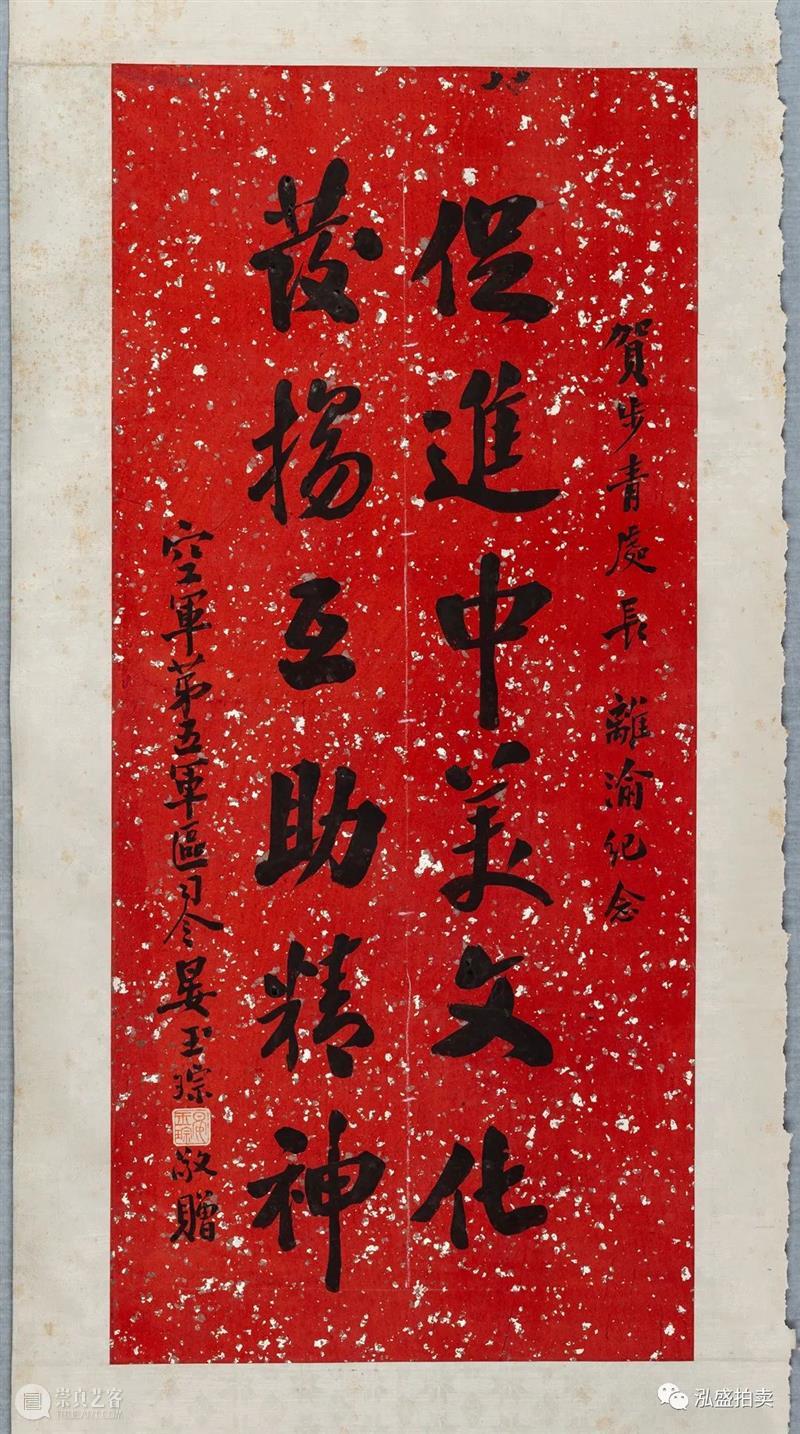 賀步青處長離渝紀念
促進中美文化
發揚互助精神
空軍第五軍區司令晏玉琮敬贈
崇真艺客
TRUEART.COM
泓盛拍卖